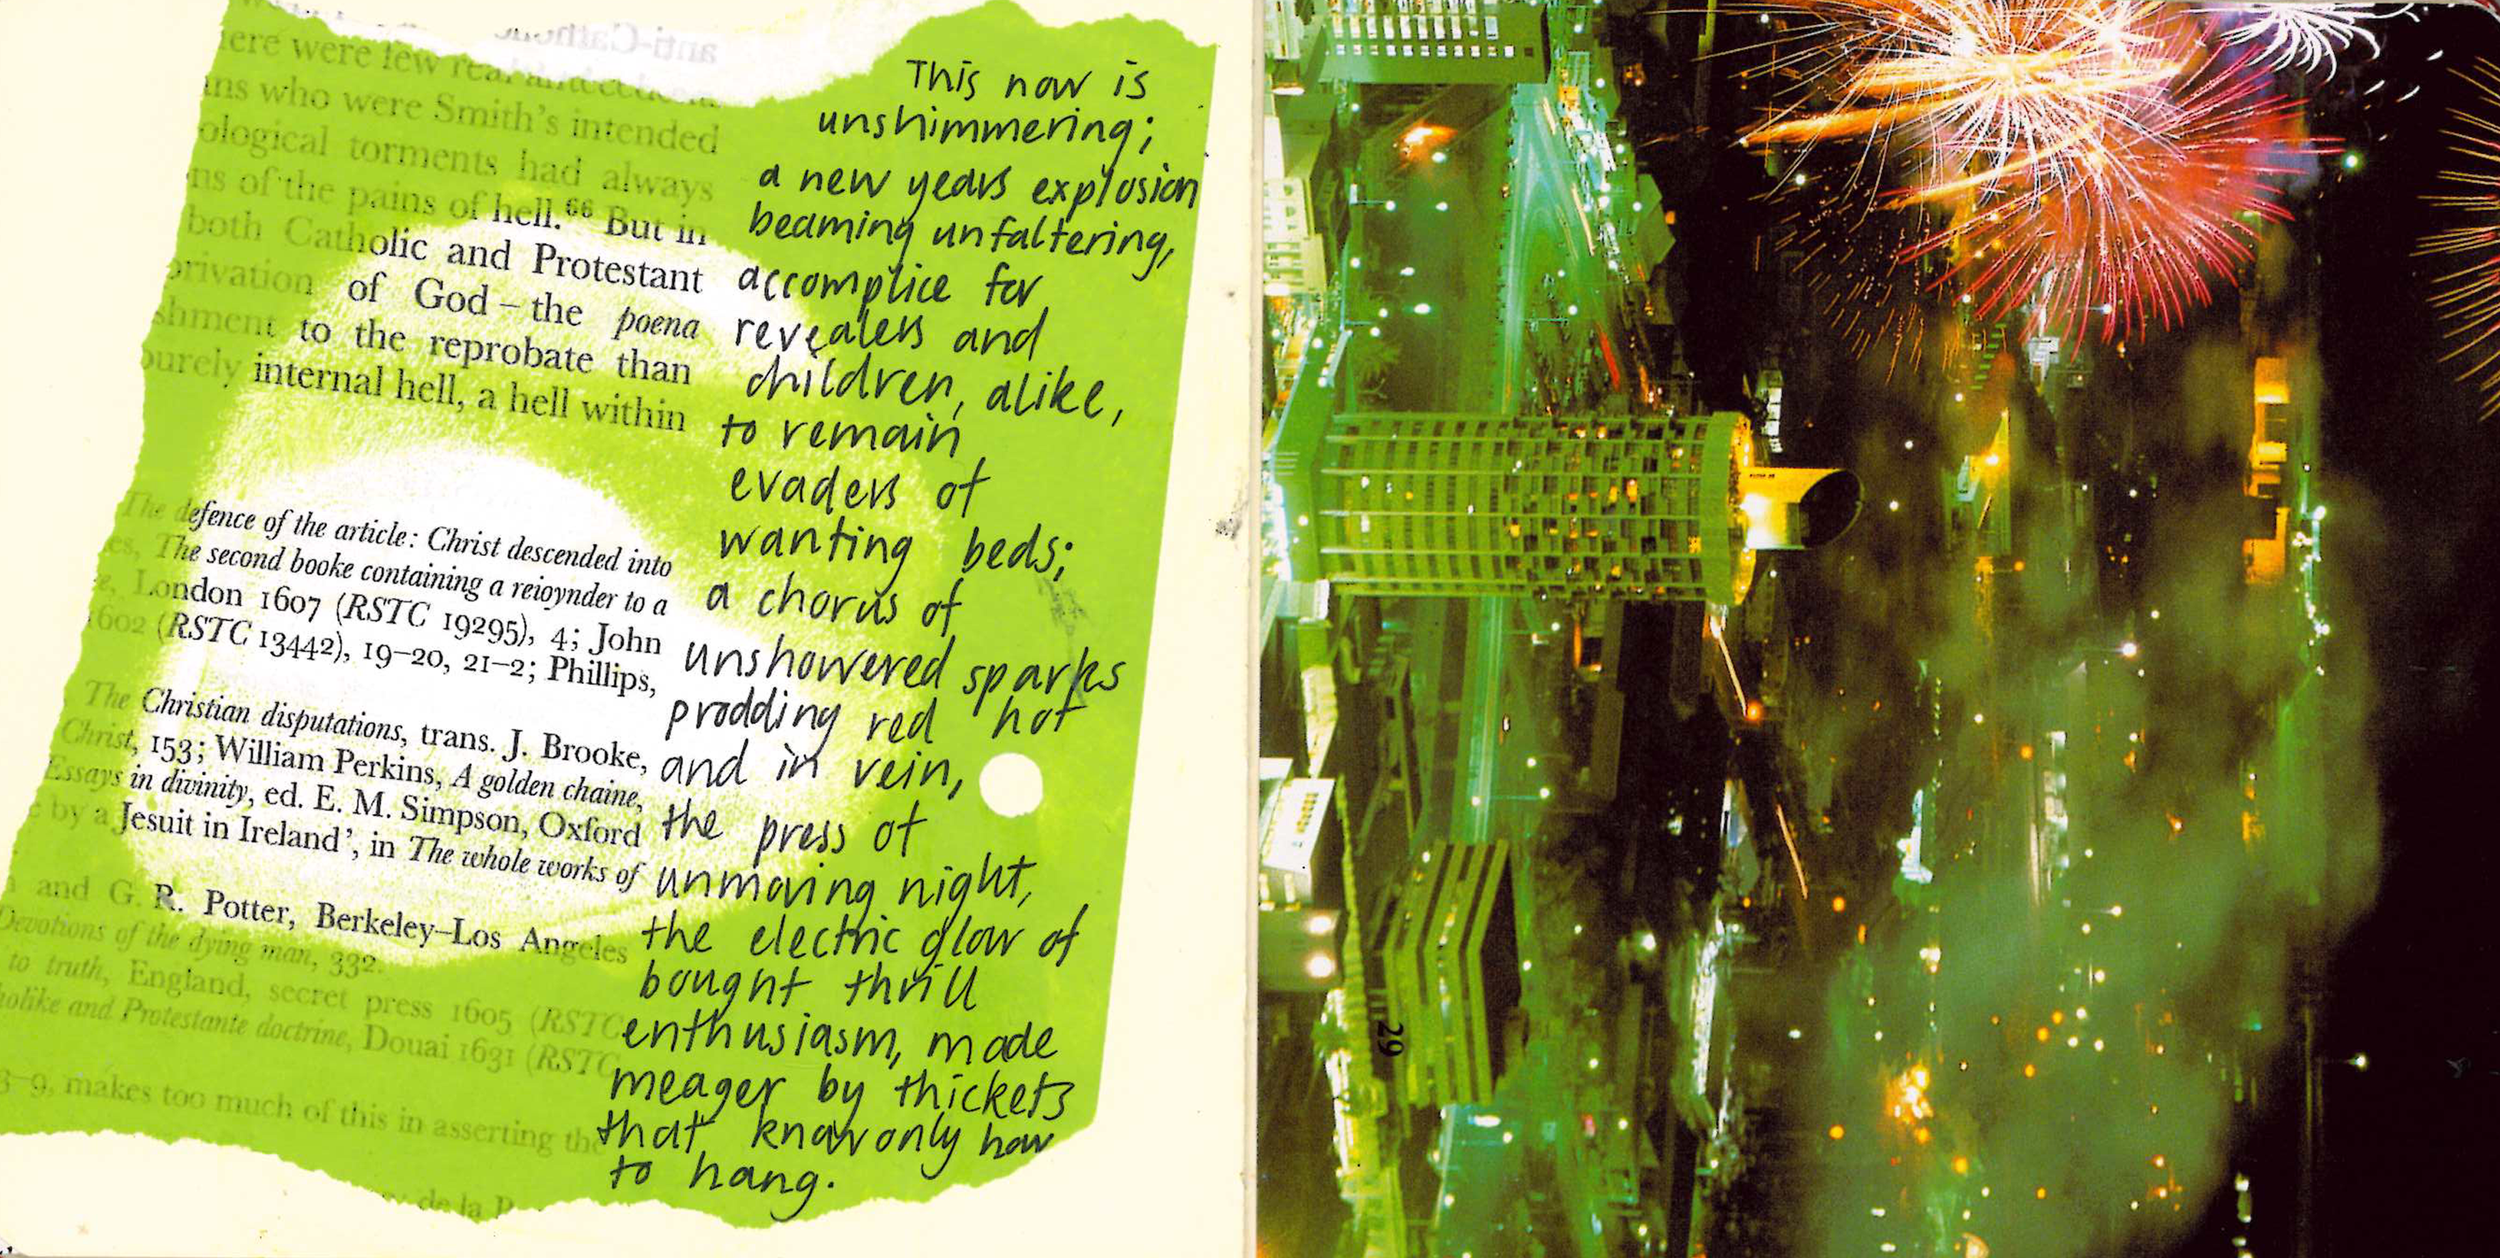 anti-Cath
ere were few real antecedents
ns who were Smith's intended
ological torments had always
ns of the pains of hell.⁶⁶ But in
both Catholic and Protestant
privation of God – the poena
shment to the reprobate than
purely internal hell, a hell within
The defence of the article: Christ descended into
es, The second booke containing a reioynder to a
e, London 1607 (RSTC 19295), 4; John
1602 (RSTC 13442), 19–20, 21–2; Phillips,
The Christian disputations, trans. J. Brooke,
Christ, 153; William Perkins, A golden chaine,
Essays in divinity, ed. E. M. Simpson, Oxford
e by a Jesuit in Ireland', in The whole works of
and G. R. Potter, Berkeley–Los Angeles
Devotions of the dying man, 332.
to truth, England, secret press 1605 (RSTC
holike and Protestante doctrine, Douai 1631 (RSTC
3–9, makes too much of this in asserting the
de la P
This now is
unshimmering;
a new years explosion
beaming unfaltering,
accomplice for
revealers and
children, alike,
to remain
evaders of
wanting beds;
a chorus of
unshowered sparks
prodding red hot
and in vein,
the press of
unmoving night,
the electric glow of
bought thrill
enthusiasm, made
meager by thickets
that know only how
to hang.
29